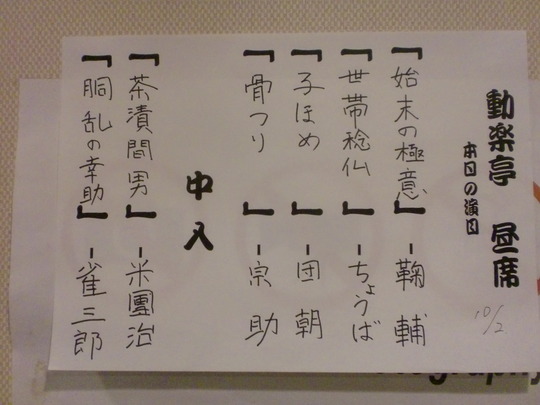 動楽亭 昼席
本日の演目
10/2
「始末の極意」-鞠輔
「世帯稔仏」-ちょうば
「子ほめ」-団朝
「骨つり」-宗助
中入
「茶漬間男」-米團治
「胴乱の幸助」-雀三郎